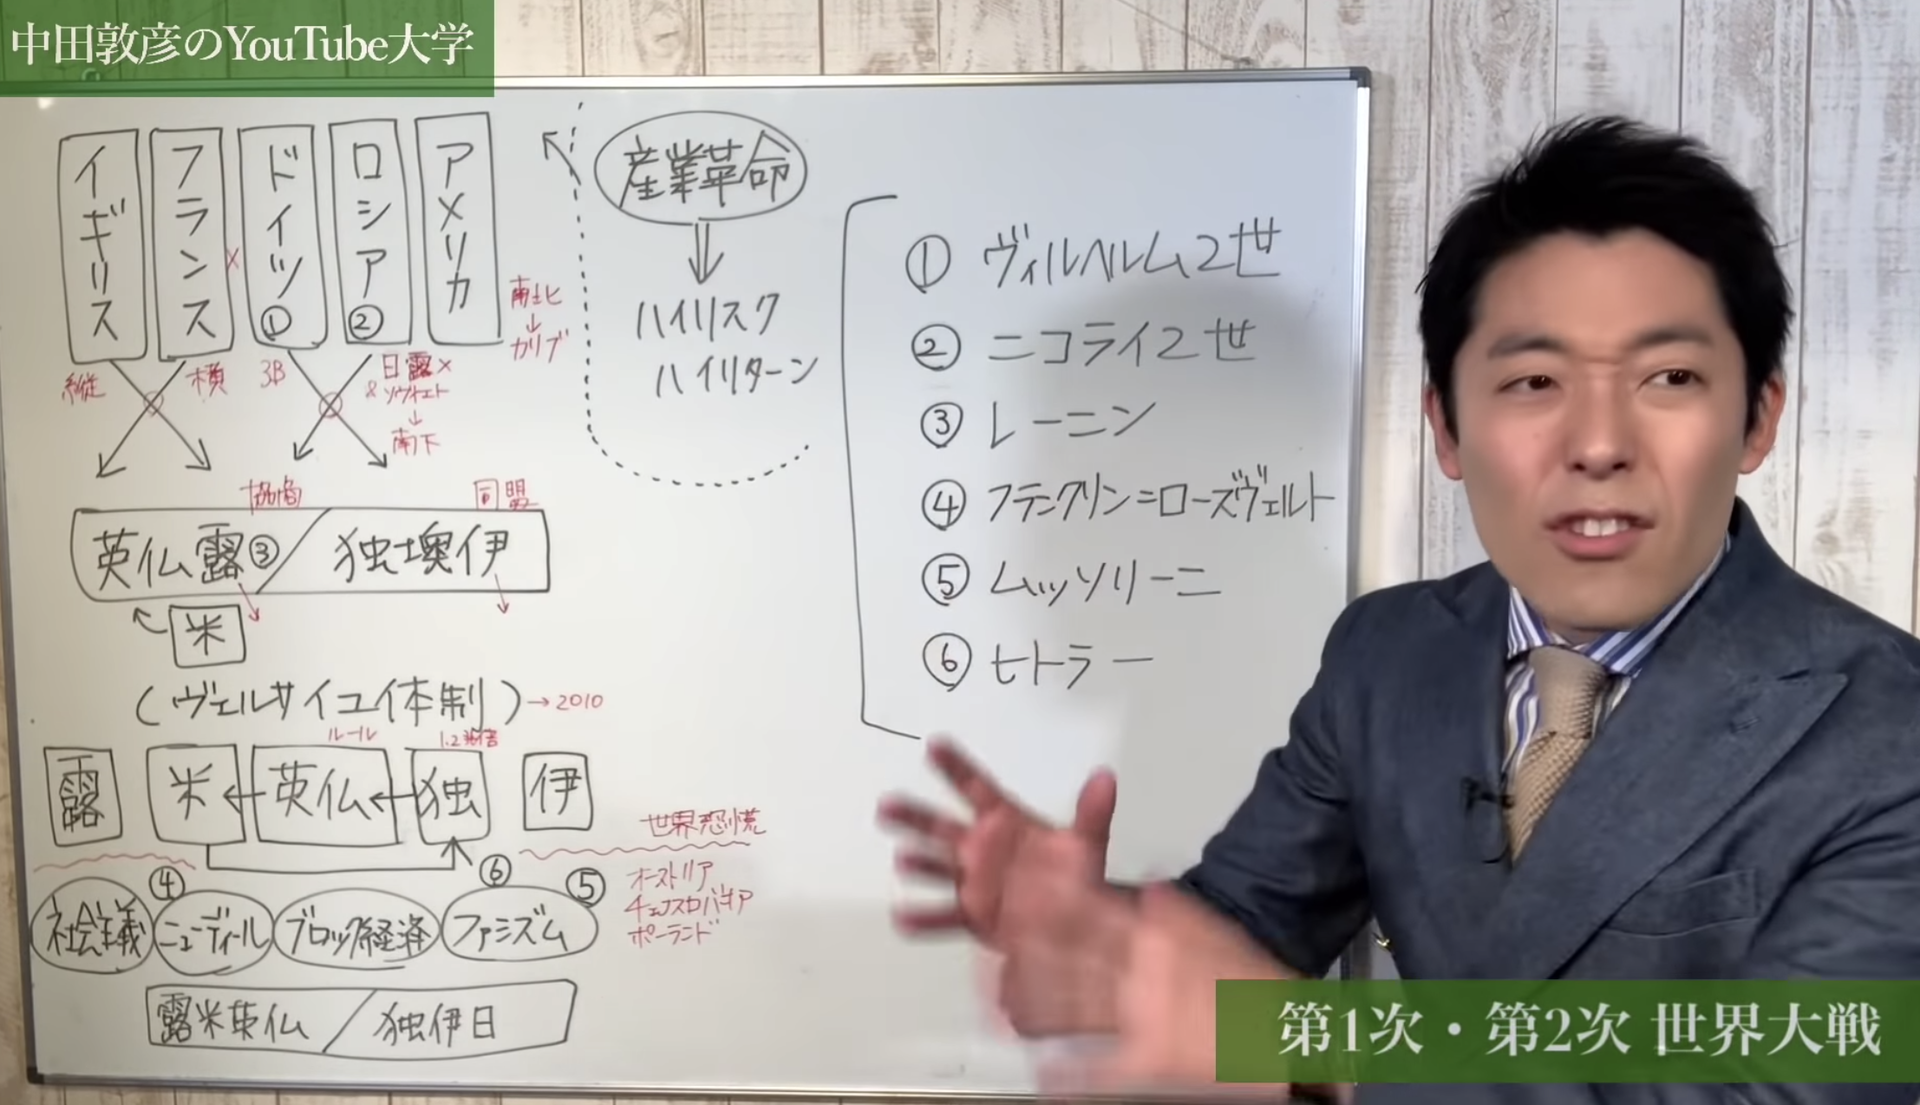 中田敦彦のYouTube大学
イギリス
フランス
×
ドイツ①
ロシア②
アメリカ
南北
↓
カリブ
縦
横
3B
日露×
&ソヴィエト
↓
南下
協商
同盟
英仏露③/独墺伊
米
(ヴェルサイユ体制)→2010
ルール
露
米←英仏←独
伊
世界恐慌
オーストリア
チェコスロバキア
ポーランド
④
⑥
⑤
社会主義
ニューディール
ブロック経済
ファシズム
露米英仏/独伊日
産業革命
ハイリスク
ハイリターン
①ヴィルヘルム2世
②ニコライ2世
③レーニン
④フランクリン=ローズヴェルト
⑤ムッソリーニ
⑥ヒトラー
第1次・第2次 世界大戦